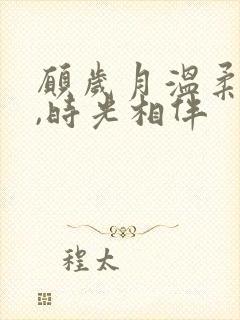 願歲月溫柔
,時光相伴
程太